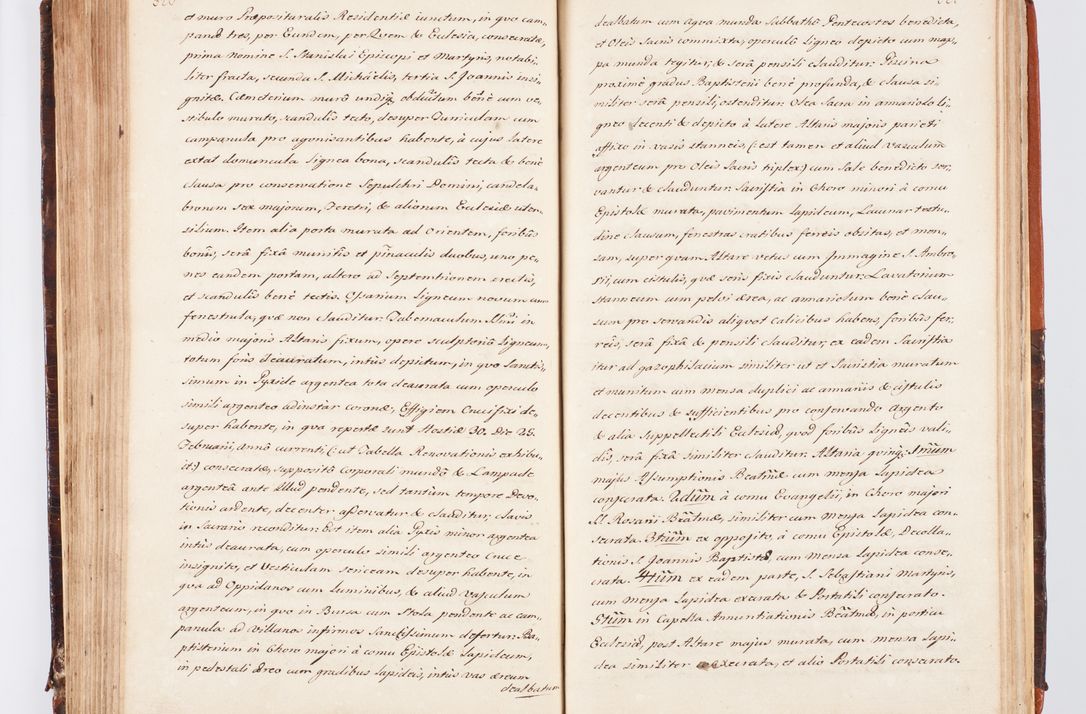 et muro Præpositurali Residentiæ iunctum, in qvo cam,,
panæ tres, per Eundem, per Qvem & Ecclesia, consecratæ,
prima nomine S. Stanislai Episcopi et Martyris, notabi,,
liter fracta, secunda S. Michaëlis, tertia S. Joannis insi,,
gnitæ. Cæmeterium murô undiq; obductum benè cum ve,,
stibulo murato, scandulis tecto, desuper Turriculam cum
campanula pro agonisantibus habente, à cujus latere
extat domuncula lignea bona, scandulis tecta & benè
clausa pro conservatione Sepulchri Domini, candela,,
brorum sex majorum, Feretri, & aliorum Ecclesiæ uten,,
silium. Item alia porta murata ad Orientem, foribus
bonis, serâ fixâ munitis et pinaculis duobus, uno pe,,
nes eandem portam, altero ad Septentrionem erectis,
et scandulis benè tectis. Ossarium ligneum novum cum
fenestrula, qvæ non clauditur. Tabernaculum in
medio majoris Altaris fixum, opere sculptoriô ligneum,
totum foris deauratum, intùs depictum, in qvo Sanctis,,
simum in Pyxide argentea tota deaurata cum operculo
simili argenteo adinstar coronæ, Effigiem Crucifixi de,,
super habente, in qva repertæ sunt Hostiæ 30. Die 25.
Februarij annô currenti (: ut Tabella Renovationis exhibu,,
it :) consecratæ, suppositô corporali mundô & Lampade
argenteâ ante Illud pendente, sed tantùm tempore Devo,,
tionis ardente, decenter asservatur & clauditur, clavis
in Sacrario reconditur. Est item alia Pyxis minor argentea
intùs deaurata, cum operculo simili argenteo Cruce
insignito, et Vesticulam sericeam desuper habente, in
qva ad Oppidanos cum Luminibus, & aliud Vasculum
argenteum, in qvo in Bursa cum Stola pendente ac cam,,
panula ad Villanos infirmos Sanctissimum defertur. Ba,,
ptisterium in Choro majori à cornu Epistolæ lapideum,
in pedestali æreo cum gradibus lapideis, intùs vas æreum
dealbatum
dealbatum cum aqva munda Sabbathô Pentecostes benedicta,
et Oleis Sacris commixta, operculô ligneo depicto cum map,,
pa munda tegitur, & serâ pensili clauditur. Piscina
proximè gradus Baptisterii benè profunda, & clausa si,,
militer serâ pensili, ostenditur. Olea Sacra in armariolo li,,
gneo decenti & depicto à latere Altaris majoris parieti
affixo in vasis stanneis, (: est tamen et aliud Vasculum
argenteum pro Oleis Sacris triplex :) cum Sale benedicto ser,,
vantur & clauduntur. Sacristia in Choro minori à cornu
Epistolæ murata, pavimentum lapideum, Laqunar testu,,
dine clausum, fenestras cratibus ferreis obsitas, et men,,
sam, super qvam Altare vetus cum Immagine S. Ambro,,
sii, cum cistulis, qvæ seris fixis clauduntur. Lavatorium
stanneum cum pelvi ærea, ac armariolum benè clau,,
sum pro servandis aliqvot calicibus habens, foribus fer,,
reis, serâ fixâ & pensili clauditur, ex eadem Sacristia
itur ad gazophilacium similiter ut et Sacristia muratum
et munitum cum mensa duplici ac armariis & cistulis
decentibus & sufficientibus pro conservando Argento
& alia Suppellectili Ecclesiæ, qvod foribus ligneis vali,,
dis, serâ fixâ similiter clauditur. Altaria qvinq; 1mum
majus Assumptionis Beatmæ cum mensa lapidea
consecrata. 2dum à cornu Evangelii, in Choro majori
SS. Rosarii Beatmæ, similiter cum mensa lapidea con,,
secrata. 3tium ex opposito, à cornu Epistolæ, Decolla,,
tionis S. Joannis Baptistæ, cum mensa lapidea conse,,
crata. 4tum ex eadem parte, S. Sebastiani Martyris,
cum mensa lapidea execrata & Portatili consecrato.
5tum in Capella Annuntiationis Beatmæ, in porticu
Ecclesiæ, post Altare majus murata, cum mensa lapi,,
dea similiter execrata, et alio Portatili consecrato.